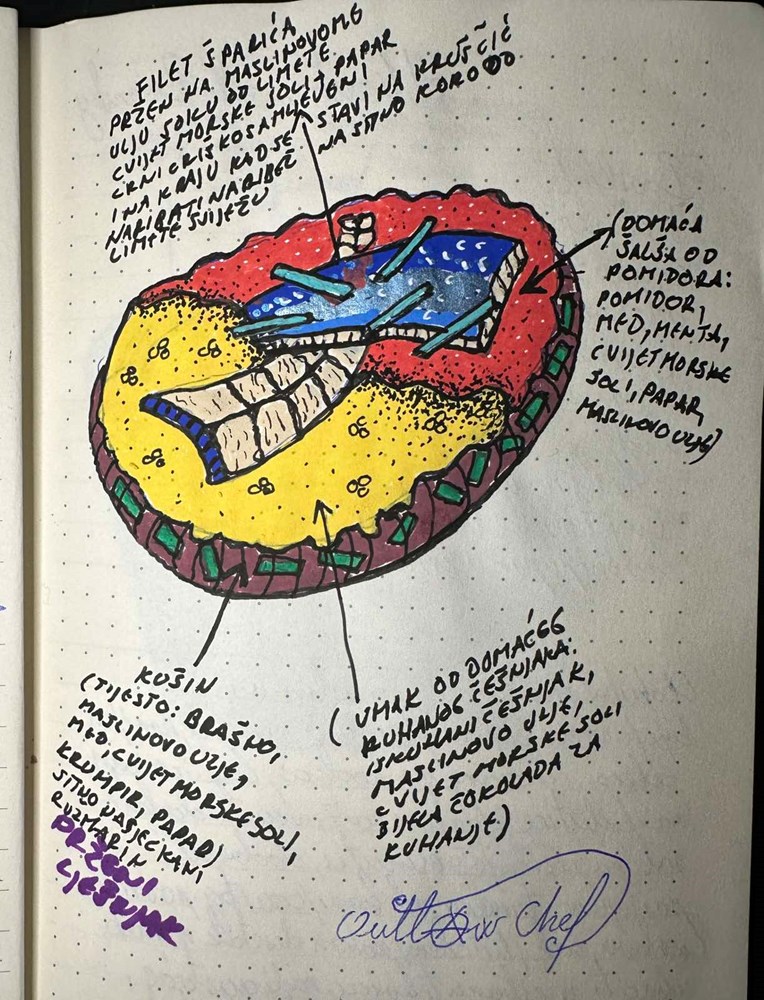 FILET ŠPARIĆA
PRŽEN NA MASLINOVOMG
ULJU SOKU OD LIMETE
CVIJET MORSKE SOLI, PAPAR
CRNI CRIŠKOSAMLJEVENI
I NA KRAJU KAD SE STAVI NA KRUŠČIĆ
NARIBATI NA RIBEŽ NA SITNO KORO OD
LIMETE SVIJEŽU
(DOMAĆA
ŠALŠA OD
POMIDORA:
POMIDOR,
MED, MENTA,
CVIJET MORSKE
SOLI, PAPAR,
MASLINOVO ULJE)
KUŠIN
(TIJESTO: BRAŠNO,
MASLINOVO ULJE,
MED, CVIJET MORSKE SOLI,
KRUMPIR, PAPAR)
SITNO NASJECKANI
RUZMARIN
PRŽENI
LJEŠNJAK
(UMAK OD DOMAĆEG
KUHANOG ČEŠNJAKA:
ISKUHANI ČEŠNJAK,
MASLINOVO ULJE,
CVIJET MORSKE SOLI
BIJELA ČOKOLADA ZA
KUHANJE)
Outlaw Chef